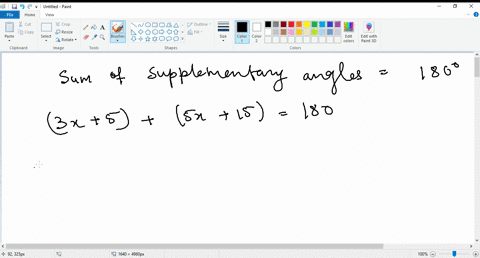 Untitled - Paint
File Home View
Paste Select Brushes Shapes Size Color 1 Color 2 Edit colors Edit with Paint 3D
Clipboard Image Tools Shapes Colors
Sum of Supplementary angles = 180°
(3x + 5) + (5x + 15) = 180
92, 325px 1640 × 4960px 100%